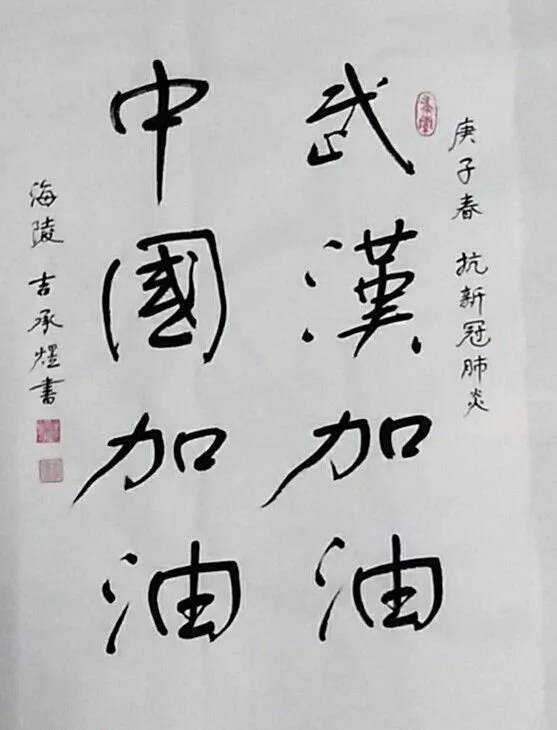 庚子春 抗新冠肺炎
武漢加油
中國加油
海陵 吉承煜書